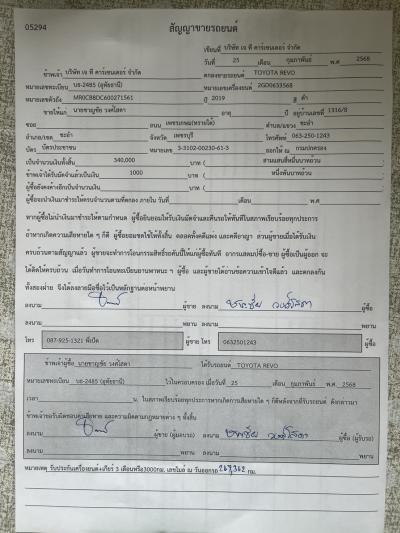 05294
สัญญาขายรถยนต์
เขียนที่ บริษัท เจ ที คาร์เซนเตอร์ จำกัด
วันที่ 25 เดือน กุมภาพันธ์ พ.ศ. 2568
ข้าพเจ้า บริษัท เจ ที คาร์เซนเตอร์ จำกัด ตกลงขายรถยนต์ TOYOTA REVO
หมายเลขทะเบียน บธ-2485 (อุทัยธานี) หมายเลขเครื่องยนต์ 2GD0633568
หมายเลขตัวถัง MR0CB8DC600271561 ปี 2019 สี ดำ
ขายให้แก่ นายชาญชัย วงศ์โสดา อายุ ปี อยู่บ้านเลขที่ 1316/8
ซอย ถนน เพชรเกษม(ทรายใต้) ตำบล/แขวง ชะอำ
อำเภอ/เขต ชะอำ จังหวัด เพชรบุรี โทรศัพท์ 063-250-1243
บัตร บัตรประชาชน หมายเลข 3-3102-00230-61-3 ออกให้ ณ กรมปกครอง
เป็นจำนวนเงินทั้งสิ้น 340,000 บาท ( สามแสนสี่หมื่นบาทถ้วน )
ข้าพเจ้าได้รับมัดจำแล้วเป็นเงิน 1000 บาท ( หนึ่งพันบาทถ้วน )
ผู้ซื้อยังคงค้างอีกเป็นจำนวนเงิน บาท ( )
ผู้ซื้อจะนำเงินมาชำระให้ครบจำนวนตามที่ตกลง ภายใน วันที่ เดือน พ.ศ.
หากผู้ซื้อไม่นำเงินมาชำระให้ตามกำหนด ผู้ซื้อยินยอมให้รับเงินมัดจำและคืนรถให้ทันทีในสภาพเรียบร้อยทุกประการ
ถ้าหากเกิดความเสียหายใด ๆ ก็ดี ผู้ซื้อยอมชดใช้ให้ทั้งสิ้น ตลอดทั้งคดีแพ่ง และคดีอาญา ส่วนผู้ขายเมื่อได้รับเงิน
ครบถ้วนตามสัญญาแล้ว ผู้ขายจะทำการโอนกรรมสิทธิ์รถคันนี้ให้แก่ผู้ซื้อทันที อากรแสตมป์ซื้อ-ขาย ผู้ซื้อเป็นผู้ออก จะ
ได้คิดให้ครบถ้วน เมื่อวันทำการโอนทะเบียนยานพาหนะ ฯ ผู้ซื้อ และผู้ขายได้อ่านข้อความเข้าใจดีแล้ว และตกลงกัน
ทั้งสองฝ่าย จึงได้ลงลายมือชื่อไว้เป็นหลักฐานต่อหน้าพยาน
ลงนาม ผู้ขาย ลงนาม ชาญชัย วงศ์โสดา ผู้ซื้อ
ลงนาม พยาน ลงนาม พยาน
โทร 087-925-1321 พี่เปิ้ล ผู้ขาย โทร 0632501243 ผู้ซื้อ
ข้าพเจ้าผู้ซื้อ นายชาญชัย วงศ์โสดา ได้รับรถยนต์ TOYOTA REVO
หมายเลขทะเบียน บธ-2485 (อุทัยธานี) ไว้ในครอบครอง เมื่อวันที่ 25 เดือน กุมภาพันธ์ พ.ศ. 2568
เวลา น. ในสภาพเรียบร้อยทุกประการหากเกิดการเสียหายใด ๆ ก็ดีหลังจากที่รับรถยนต์ ดังกล่าวมา
ข้าพเจ้าจะรับผิดชอบต่อเสียหาย และความผิดตามกฎหมายต่าง ๆ ทั้งสิ้น
ลงนาม ผู้ขาย (ผู้มอบรถ) ลงนาม ชาญชัย วงศ์โสดา ผู้ซื้อ (ผู้รับรถ)
ลงนาม พยาน ลงนาม พยาน
หมายเหตุ รับประกันเครื่องยนต์+เกียร์ 3 เดือนหรือ3000กม. เลขไมล์ ณ วันออกรถ 267,362 กม.